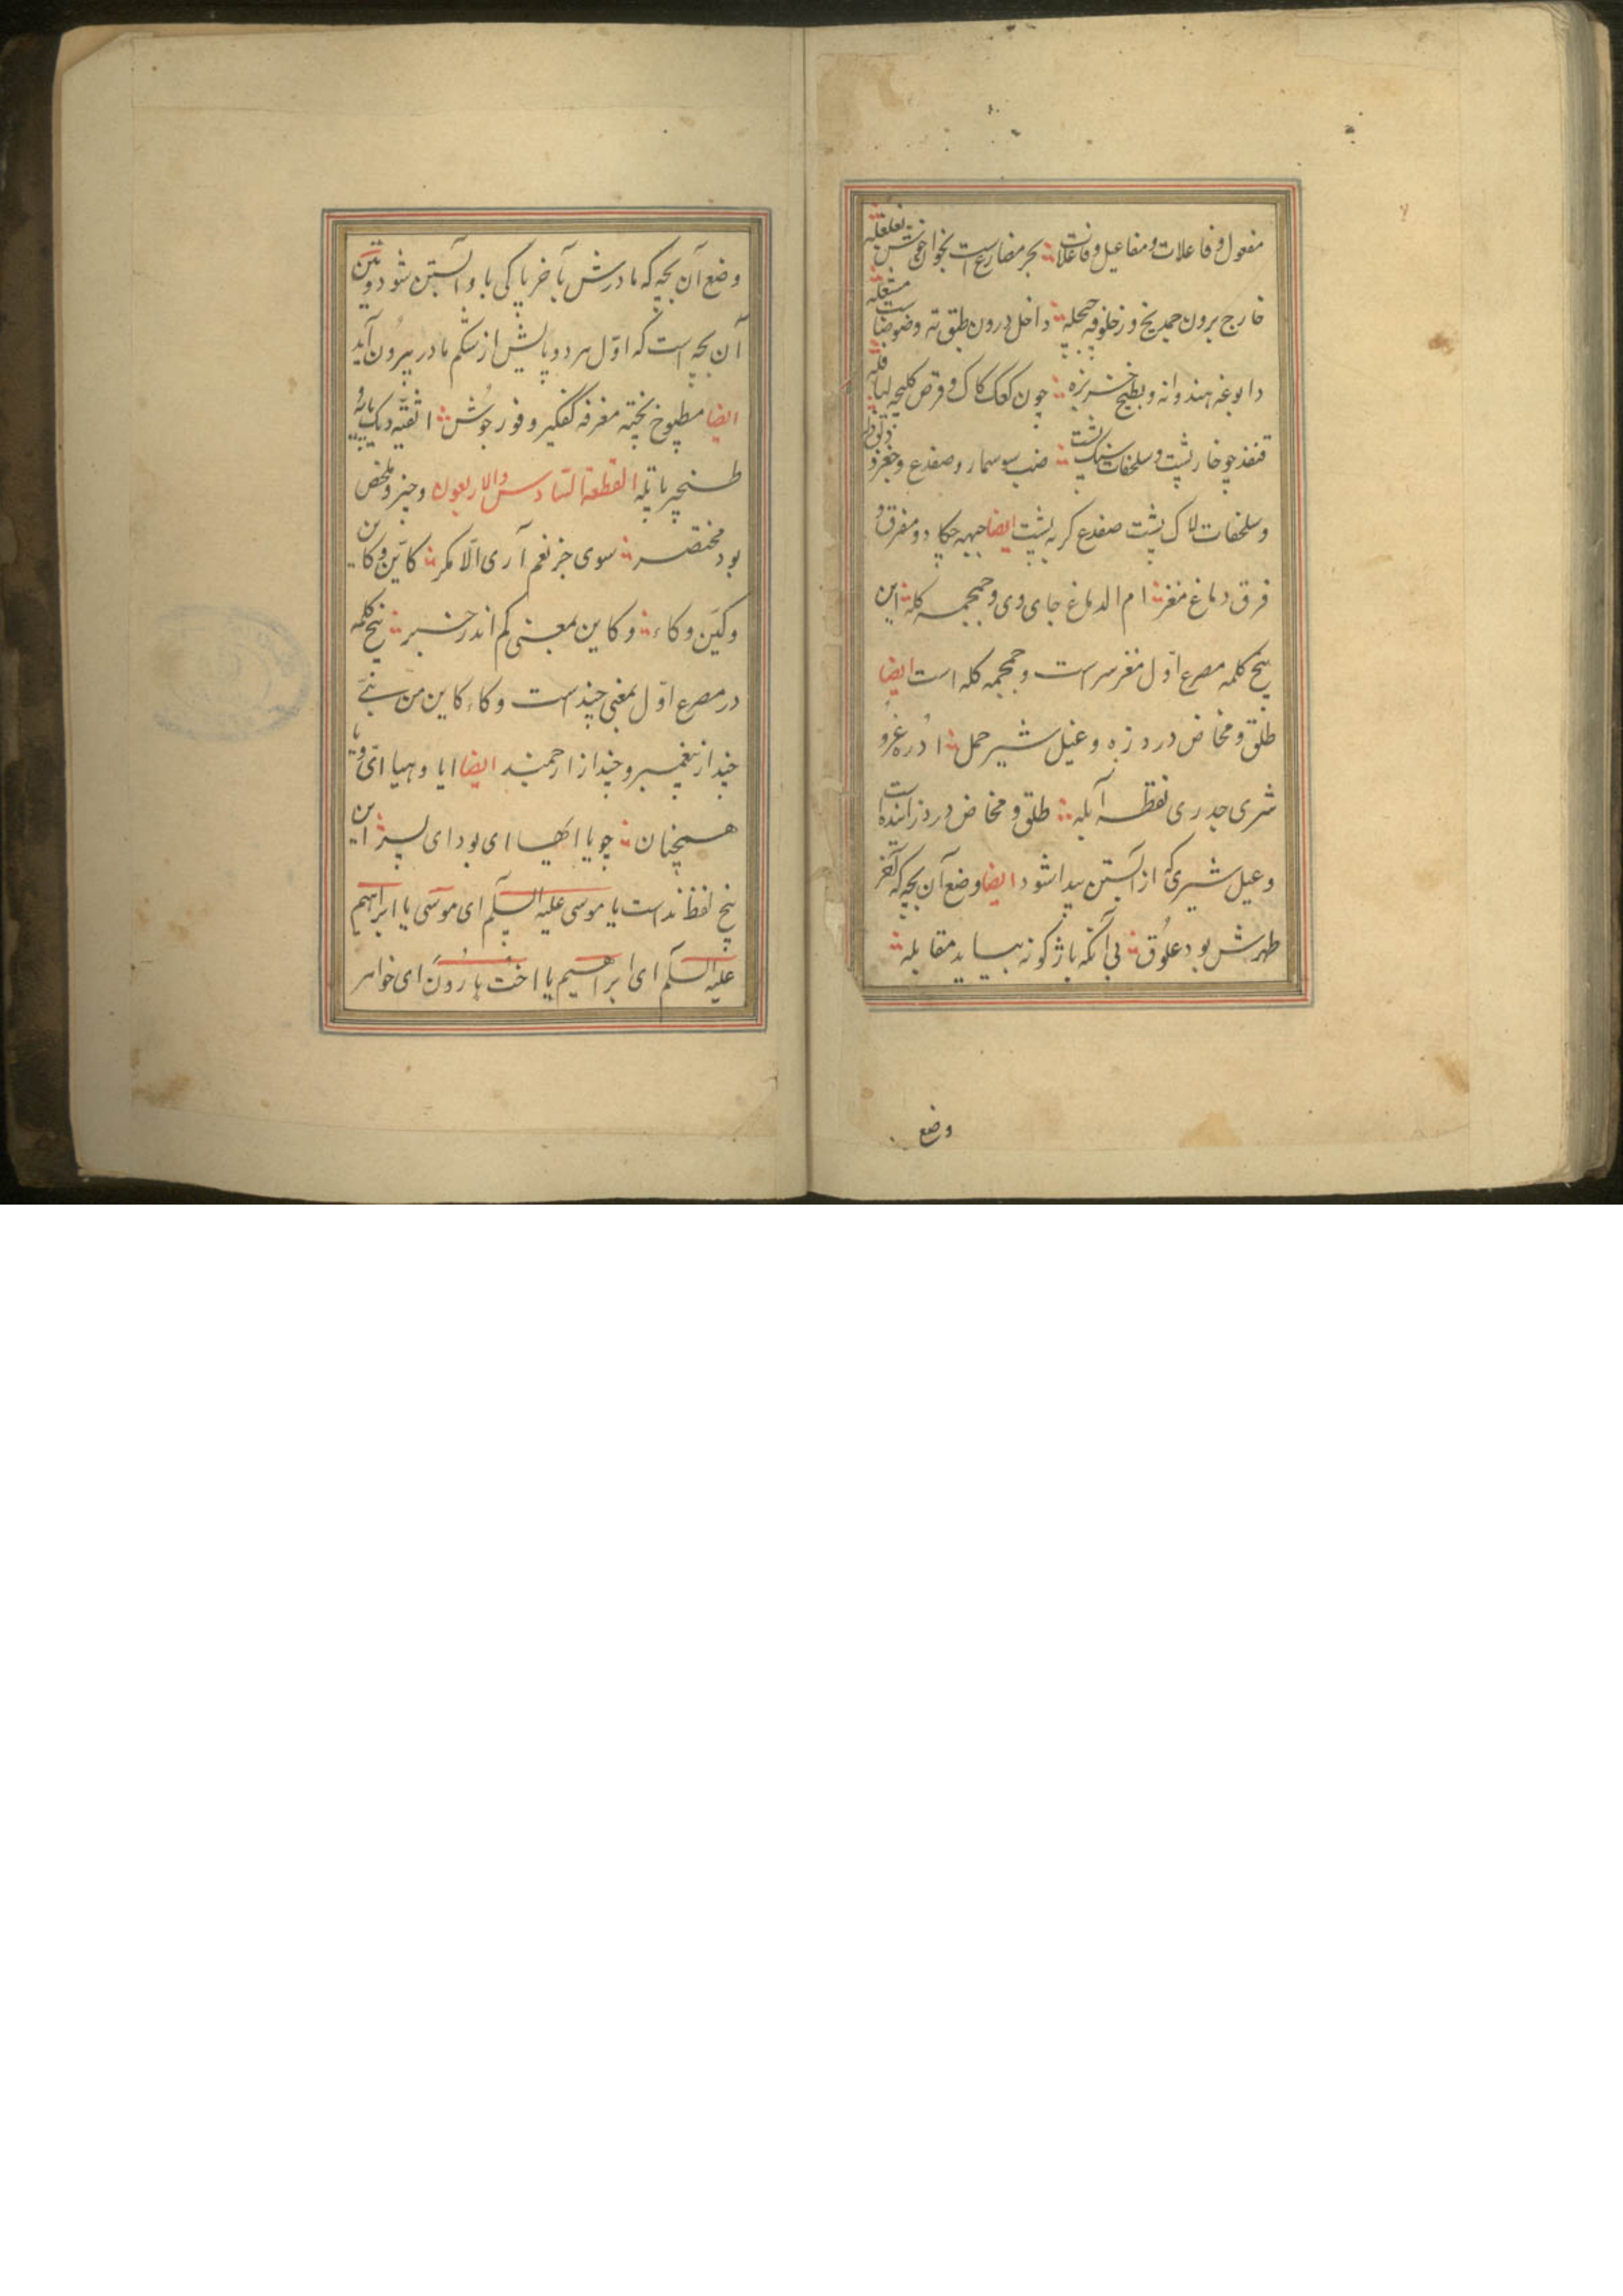 مفعول و فاعلات و مفاعیل و فاعلات بحر مضارع است بخوان خوش
خارج برون جمد یخ و زحلوفه داخل درون طبق ته و ضوضا
دابوغه هندوانه و بطیخ خربزه چون کعک کاک و قرص کلیچه لبا فله
قنفذ چو خارپشت و سلحفات سنگ پشت ضب سوسمار و ضفدع و چغز و
و سلحفات لاک پشت ضفدع کربه پشت ایضا جبهه چکاد و مفرق و
فرق دماغ مغز ام الدماغ جای وی و جمجمه کله این
پنج کلمه مصرع اول مغز سر است و جمجمه کله است ایضا
طلق و مخاض درد زه و غیل شیر حمل ادره غر و
شری جدری نفطه آبله طلق و مخاض درد زاینده است
و غیل شیری که از آبستن پیدا شود ایضا وضع آن بچه که آخر
طهرش بود علوق بی آنکه باژکونه بیاید مقابله
وضع
وضع آن بچه که مادرش بآخر پاکی باو آبستن شود و یتن
آن بچه است که اول هر دو پایش از شکم مادر بیرون آید
ایضا مطبوخ پخته مغرفه کفگیر و فور جوش اثفیه دیک پایه و
طنجیر پاتله القطعة السادس والاربعون وجیز و ملخص
بود مختصر سوی جز نعم آری الا مکر کاین و کاین
و کین و کاء و کاین بمعنی کم اندر خبر پنج کلمه
در مصرع اول بمعنی چند است و کاء کاین من نبی
چند از پیغمبر و چند از ارجمند ایضا ایا و هیا ای و یا
همچنان چو یا ایها ای بود ای پسر این
پنج لفظ نداست یا موسی علیه السلم ای موسی یا ابراهیم
علیه السلم ای ابراهیم یا اخت هارون ای خواهر